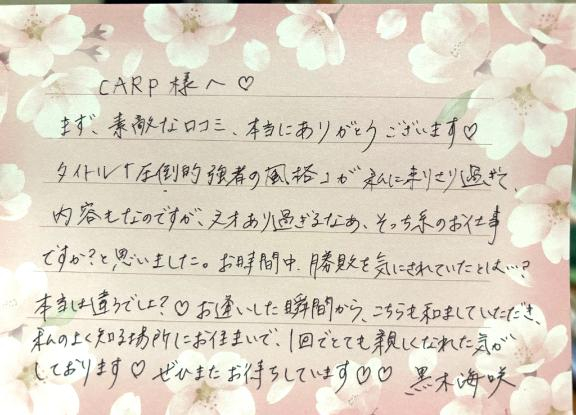 CARP様へ♡
まず、素敵な口コミ、本当にありがとうございます♡
タイトル「圧倒的強者の風格」が私に刺さり過ぎて、
内容もなのですが、文才あり過ぎるなあ、そっち系のお仕事
ですか?と思いました。お時間中、勝敗を気にされていたとは…?
本当は違うでしょ?♡お逢いした瞬間から、こちらも和ませていただき、
私のよく知る場所にお住まいで、1回でとても親しくなれた気が
しております♡ぜひまたお待ちしています♡♡ 黒木海咲